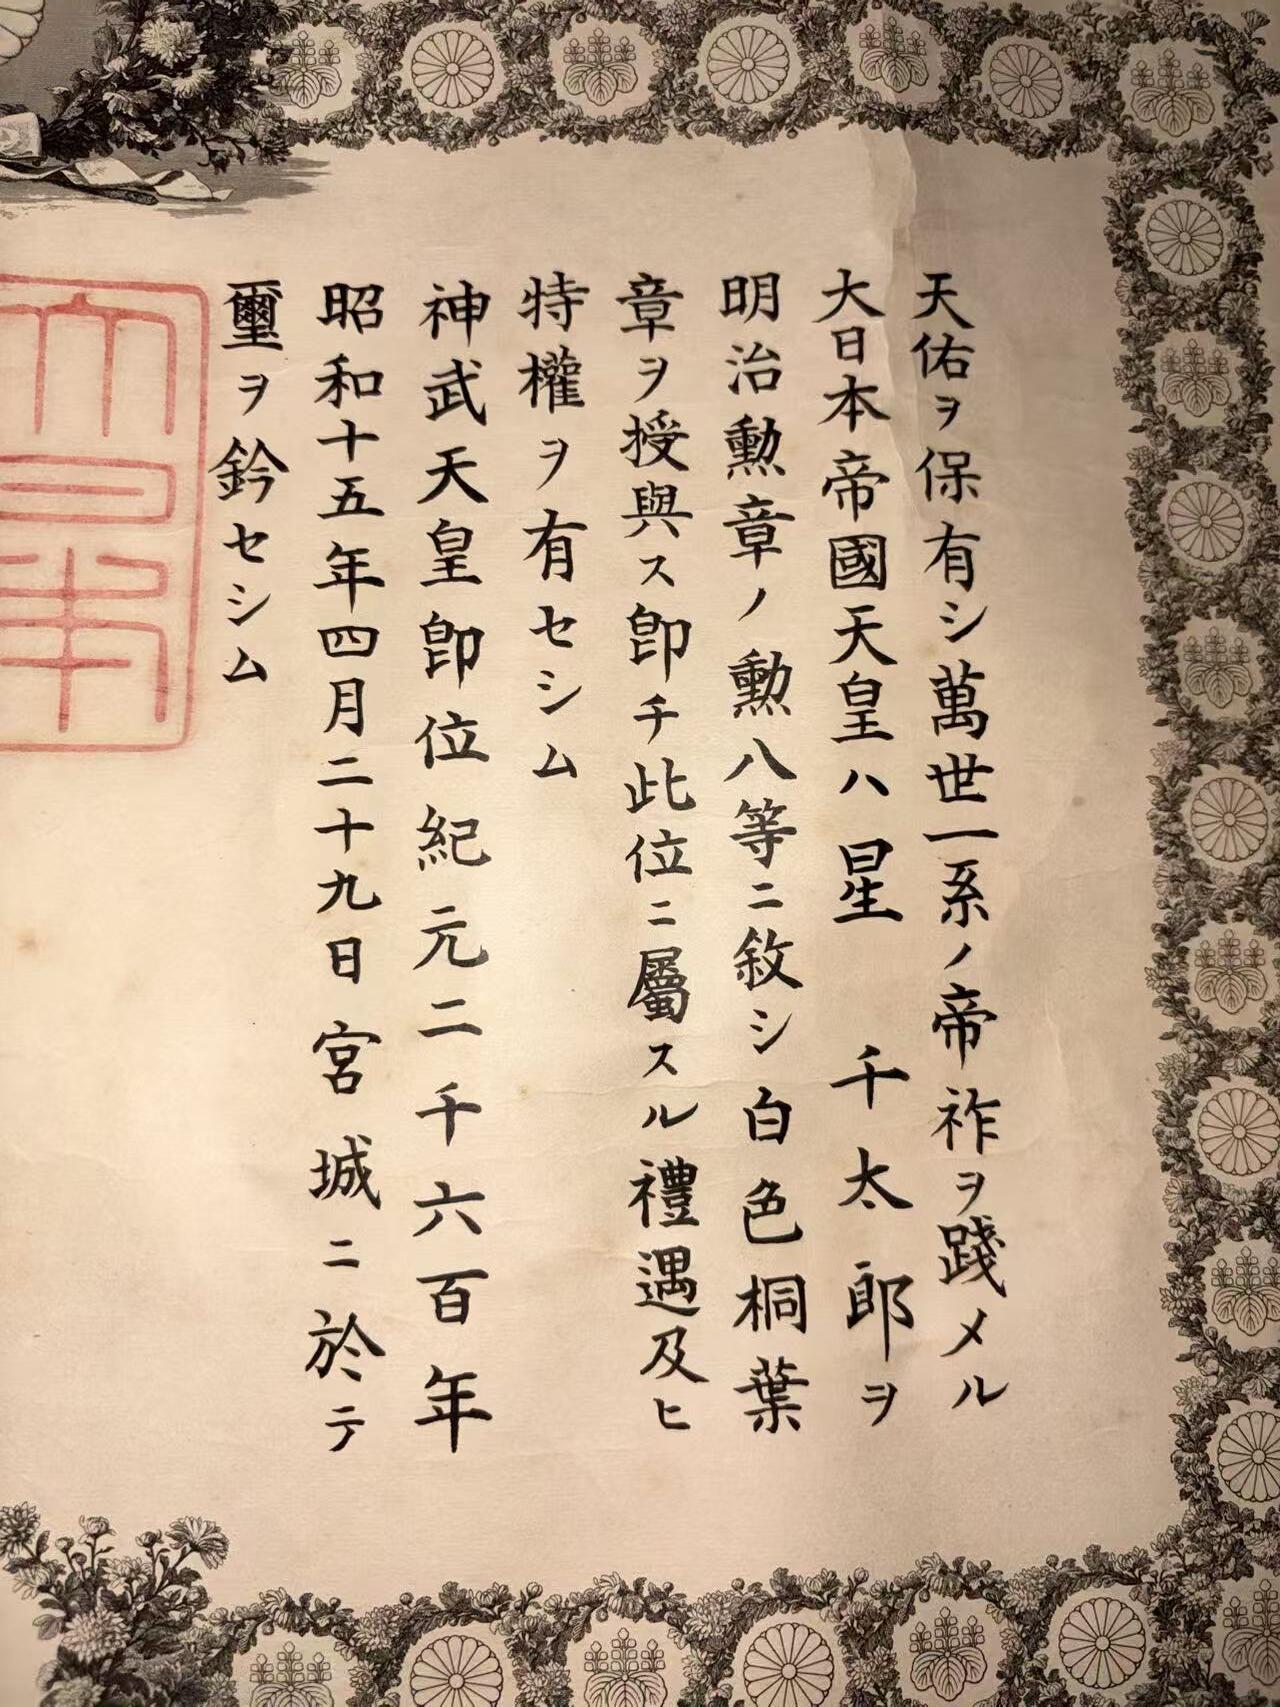 天佑ヲ保有シ萬世一系ノ帝祚ヲ踐メル
大日本帝國天皇ハ星千太郎ヲ
明治勲章ノ勲八等ニ敘シ白色桐葉
章ヲ授與ス卽チ此位ニ屬スル禮遇及ヒ
特權ヲ有セシム
神武天皇卽位紀元二千六百年
昭和十五年四月二十九日宮城ニ於テ
璽ヲ鈐セシム
大日本